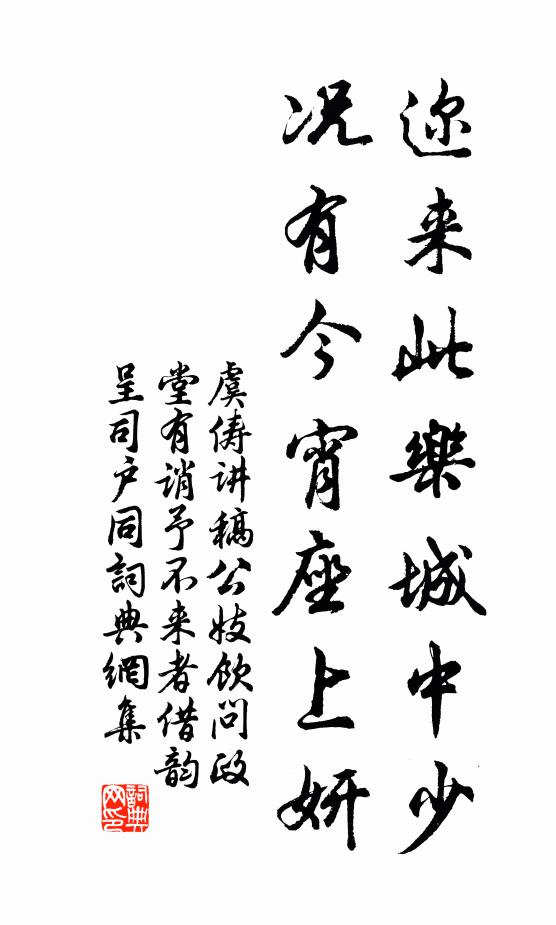 迩来此樂城中少
况有今宵座上妍
虞俦讲稿公妓饮问政
堂有诮予不来者借韵
呈司户同詞典網集
詞典
网印